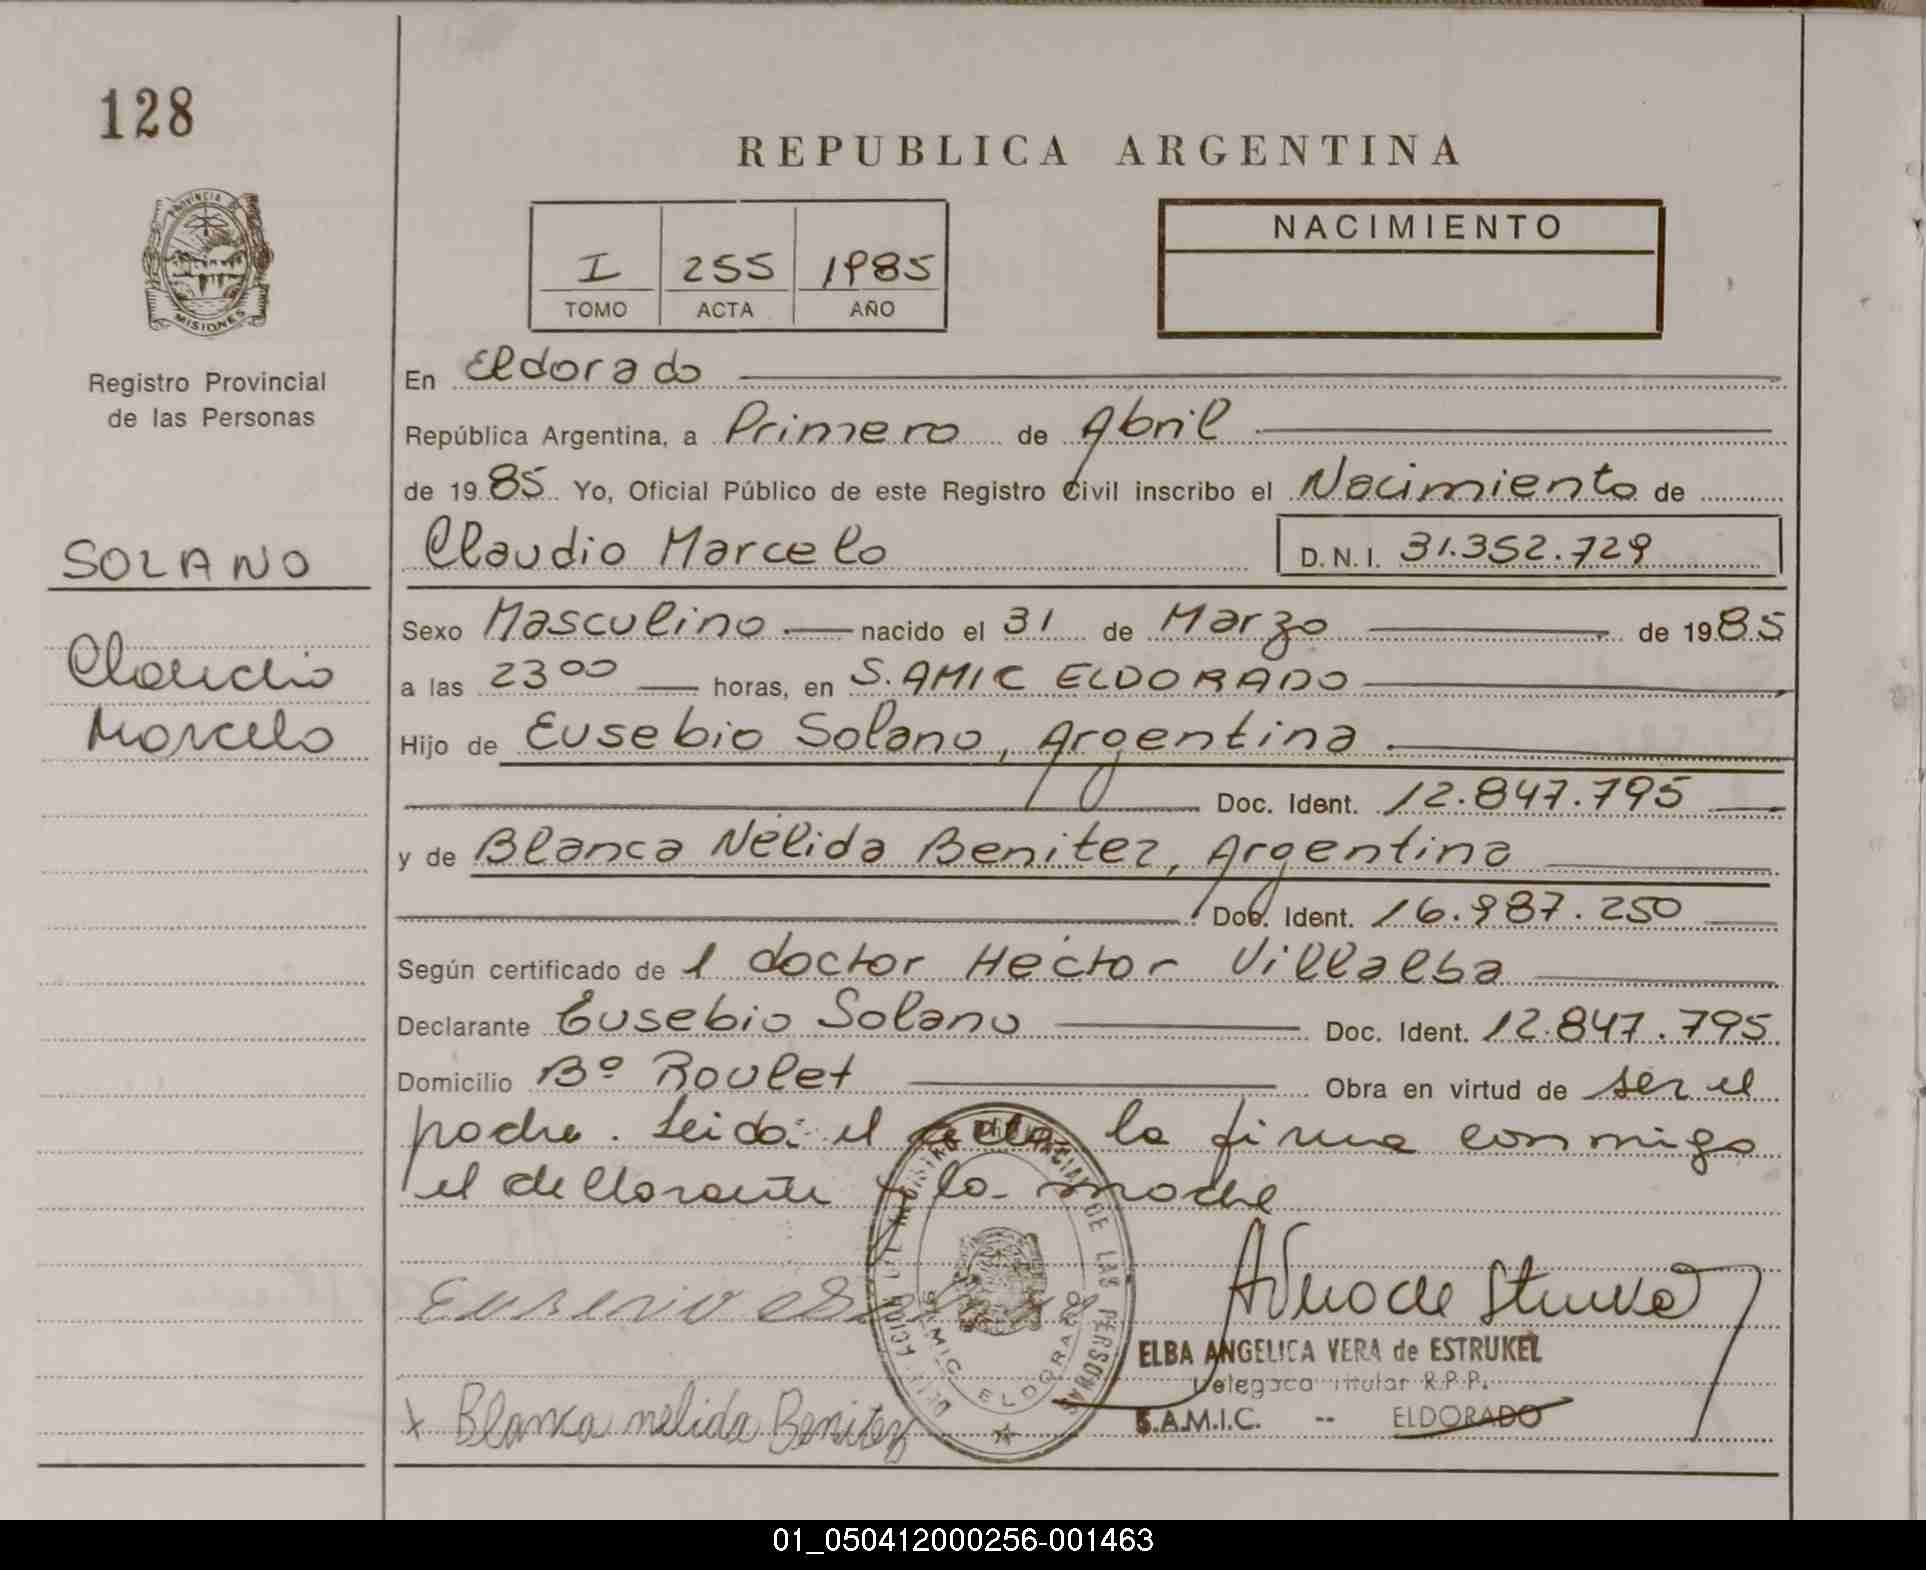 128
PROVINCIA DE
MISIONES
Registro Provincial
de las Personas
SOLANO
Claudio
Marcelo
REPUBLICA ARGENTINA
I 255 1985
TOMO ACTA AÑO
NACIMIENTO
En Eldorado
República Argentina, a Primero de Abril
de 1985 Yo, Oficial Público de este Registro Civil inscribo el Nacimiento de
Claudio Marcelo D.N.I. 31.352.729
Sexo Masculino nacido el 31 de Marzo de 1985
a las 23 00 horas, en S.AMIC ELDORADO
Hijo de Eusebio Solano, Argentina
Doc. Ident. 12.847.795
y de Blanca Nélida Benitez, Argentina
Doc. Ident. 16.987.250
Según certificado de 1 doctor Héctor Villalba
Declarante Eusebio Solano Doc. Ident. 12.847.795
Domicilio Bº Roulet Obra en virtud de ser el
padre. Leida el acta la firma conmigo
el declarante y la madre
Eusebio
x Blanca nelida Benitez
REGISTRO PROVINCIAL DE LAS PERSONAS
SAMIC ELDORADO
ELBA ANGELICA VERA de ESTRUKEL
Delegada Titular R.P.P.
S.A.M.I.C. -- ELDORADO
01_050412000256-001463